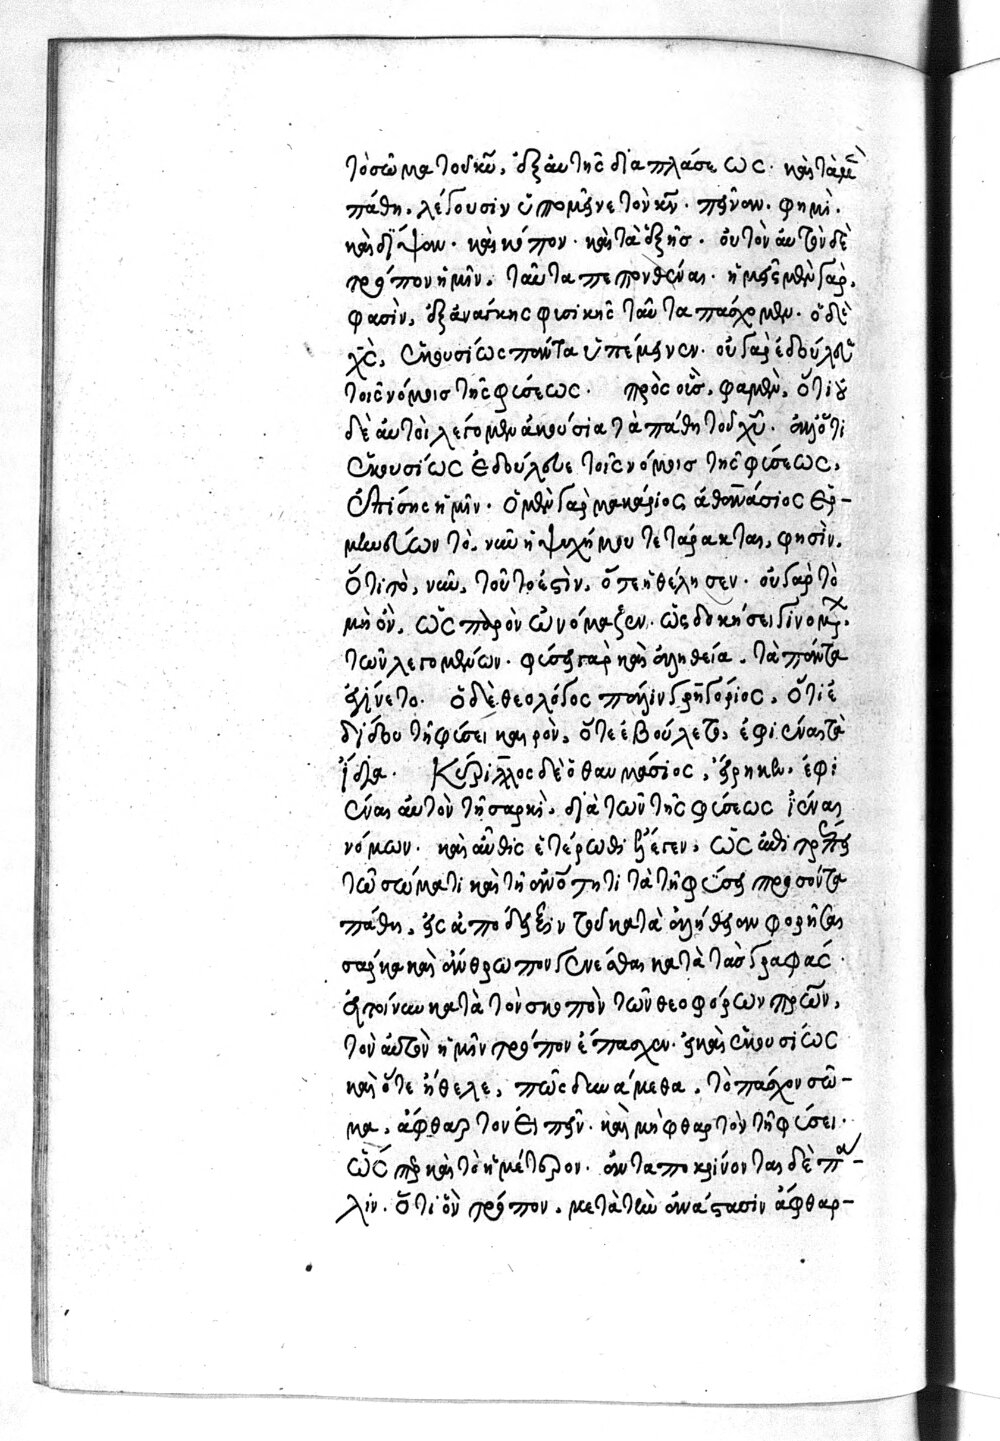 τὸ σῶμα τοῦ κυ, ἐξ αὐτῆς διαπλάσεως. καὶ τὰ μὲν
πάθη, λέγουσιν ὑπομεῖναι τὸν κν. πεῖναν. φημὶ.
καὶ δίψαν. καὶ κόπον. καὶ τὰ ἑξῆς. οὐ τὸν αὐτὸν δὲ
τρόπον ἡμῖν, ταῦτα πεπονθέναι. ἡμεῖς μὲν γὰρ,
φασὶν, ἐξ ἀνάγκης φυσικῆς ταῦτα πάσχομεν. ὁ δὲ
χς, ἑκουσίως πάντα ὑπέμεινεν. οὐ γὰρ ἐδούλου
τοῖς νόμοις τῆς φύσεως. πρὸς οὓς, φαμὲν, ὅτι οὐ
δὲ αὐτοὶ λέγομεν ἀκούσια τὰ πάθη τοῦ χυ. ἀλλ' ὅτι
ἑκουσίως ἐδούλευε τοῖς νόμοις τῆς φύσεως,
ἐπίσης ἡμῖν. ὁ μὲν γὰρ μακάριος ἀθανάσιος ἑρ-
μηνεύων τὸ, νῦν ἡ ψυχή μου τετάρακται, φησὶν,
ὅτι τὸ, νῦν, τοῦτο ἐστὶν, ὅτε ἠθέλησεν. οὐ γὰρ τὸ
μὴ ὂν, ὡς παρὸν ὠνόμαζεν. ὡς δοκήσει γινομένων
τῶν λεγομένων. φύσει γὰρ καὶ ἀληθεία, τὰ πάντα
ἐγίνετο. ὁ δὲ θεολόγος πάλιν γρηγόριος, ὅτι ἐ
δίδου τῆ φύσει καιρὸν, ὅτε ἐβούλετο, ἐφιέναι τὰ
ἴδια. Κύριλλος δὲ ὁ θαυμάσιος, εἴρηκεν, ἐφι
έναι αὐτὸν τῆ σαρκὶ, διὰ τῶν τῆς φύσεως ἰέναι
νόμων. καὶ αὖθις ἑτέρωθι ἔλεγεν, ὡς ἐπιτρέπει
τῶ σώματι καὶ τῆ ἀνότητι τὰ τῆ φύσει προσόντα
πάθη, εἰς ἀπόδειξιν τοῦ κατὰ ἀλήθειαν φορέσαι
σάρκα καὶ ἄνθρωπον γενέσθαι κατὰ τὰς γραφάς.
εἰ τοίνυν κατὰ τὸν σκοπὸν τῶν θεοφόρων πρων,
τὸν αὐτὸν ἡμῖν τρόπον ἔπασχεν. εἰ καὶ ἑκουσίως
καὶ ὅτε ἤθελε, πῶς δυνάμεθα, τὸ πάσχον σῶ-
μα, ἄφθαρτον εἰπεῖν. καὶ μὴ φθαρτὸν τῆ φύσει.
ὥσπερ καὶ τὸ ἡμέτερον. ἀνταποκρίνονται δὲ πά-
λιν. ὅτι ὃν τρόπον, μετὰ τὴν ἀνάστασιν ἄφθαρ-